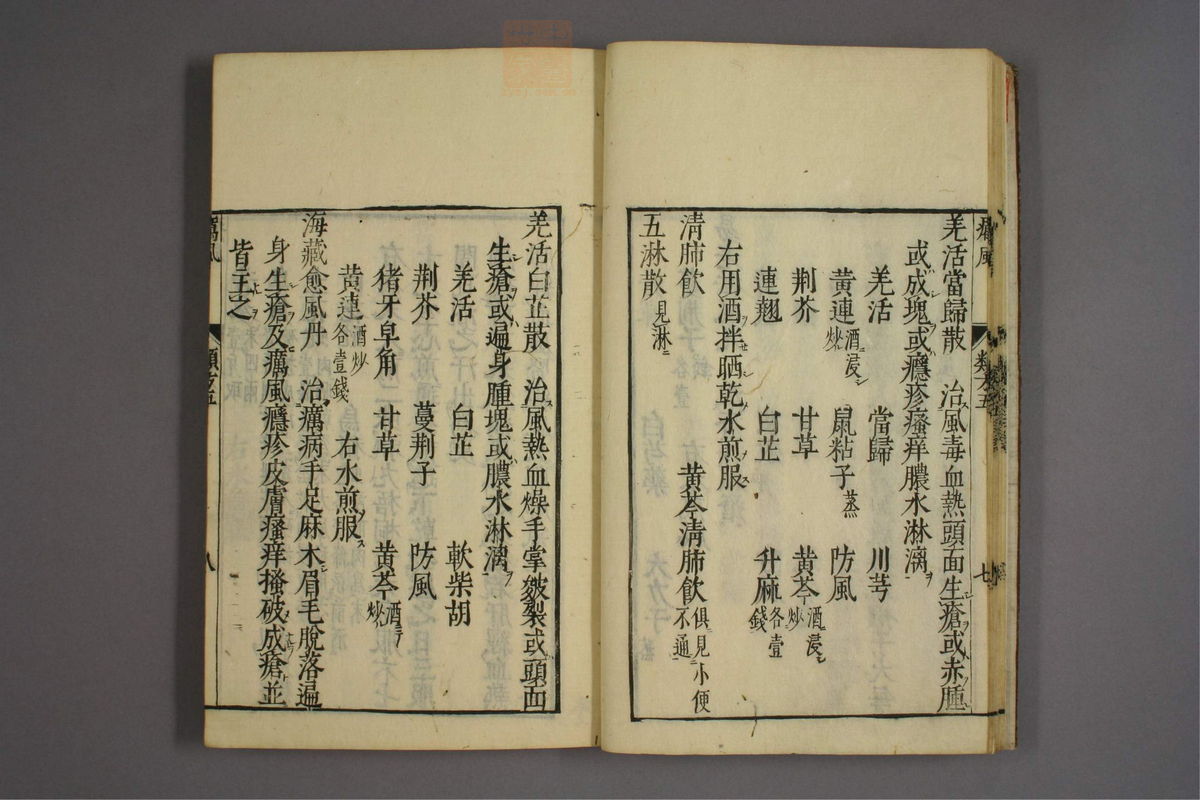 癘風 類方五 七
羌活當歸散 治風毒血熱頭面生瘡或赤腫
或成塊或癮疹瘙痒膿水淋漓
羌活 當歸 川芎
黄連酒浸炒 鼠粘子蒸 防風
荆芥 甘草 黄芩酒浸炒
連翹 白芷 升麻各壹錢
右用酒拌晒乾水煎服
清肺飲 黄芩清肺飲俱見小便不通
五淋散見淋
羌活白芷散 治風熱血燥手掌皴裂或頭面
生瘡或遍身腫塊或膿水淋漓
羌活 白芷 軟柴胡
荆芥 蔓荆子 防風
猪牙皁角 甘草 黄芩酒炒
黄連酒炒各壹錢 右水煎服
海藏愈風丹 治癘病手足麻木眉毛脫落遍
身生瘡及癘風癮疹皮膚瘙痒搔破成瘡並
皆主之
癘風 類方五 八